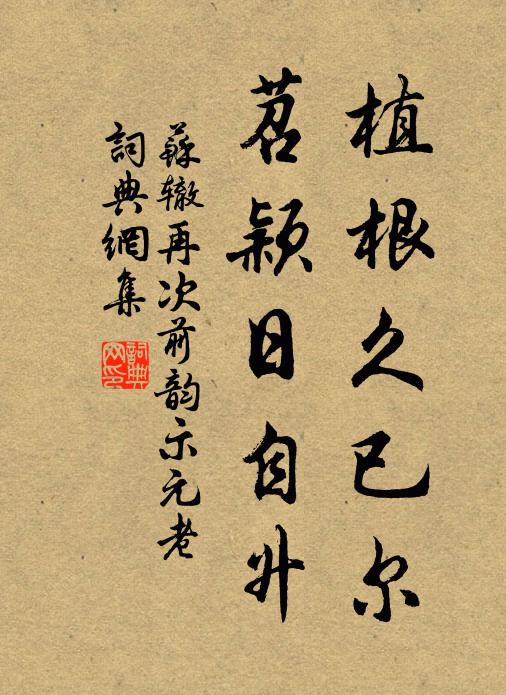 植根久已尔
苕颖日自升
蘇辙再次前韵示元老
詞典網集
詞典网印